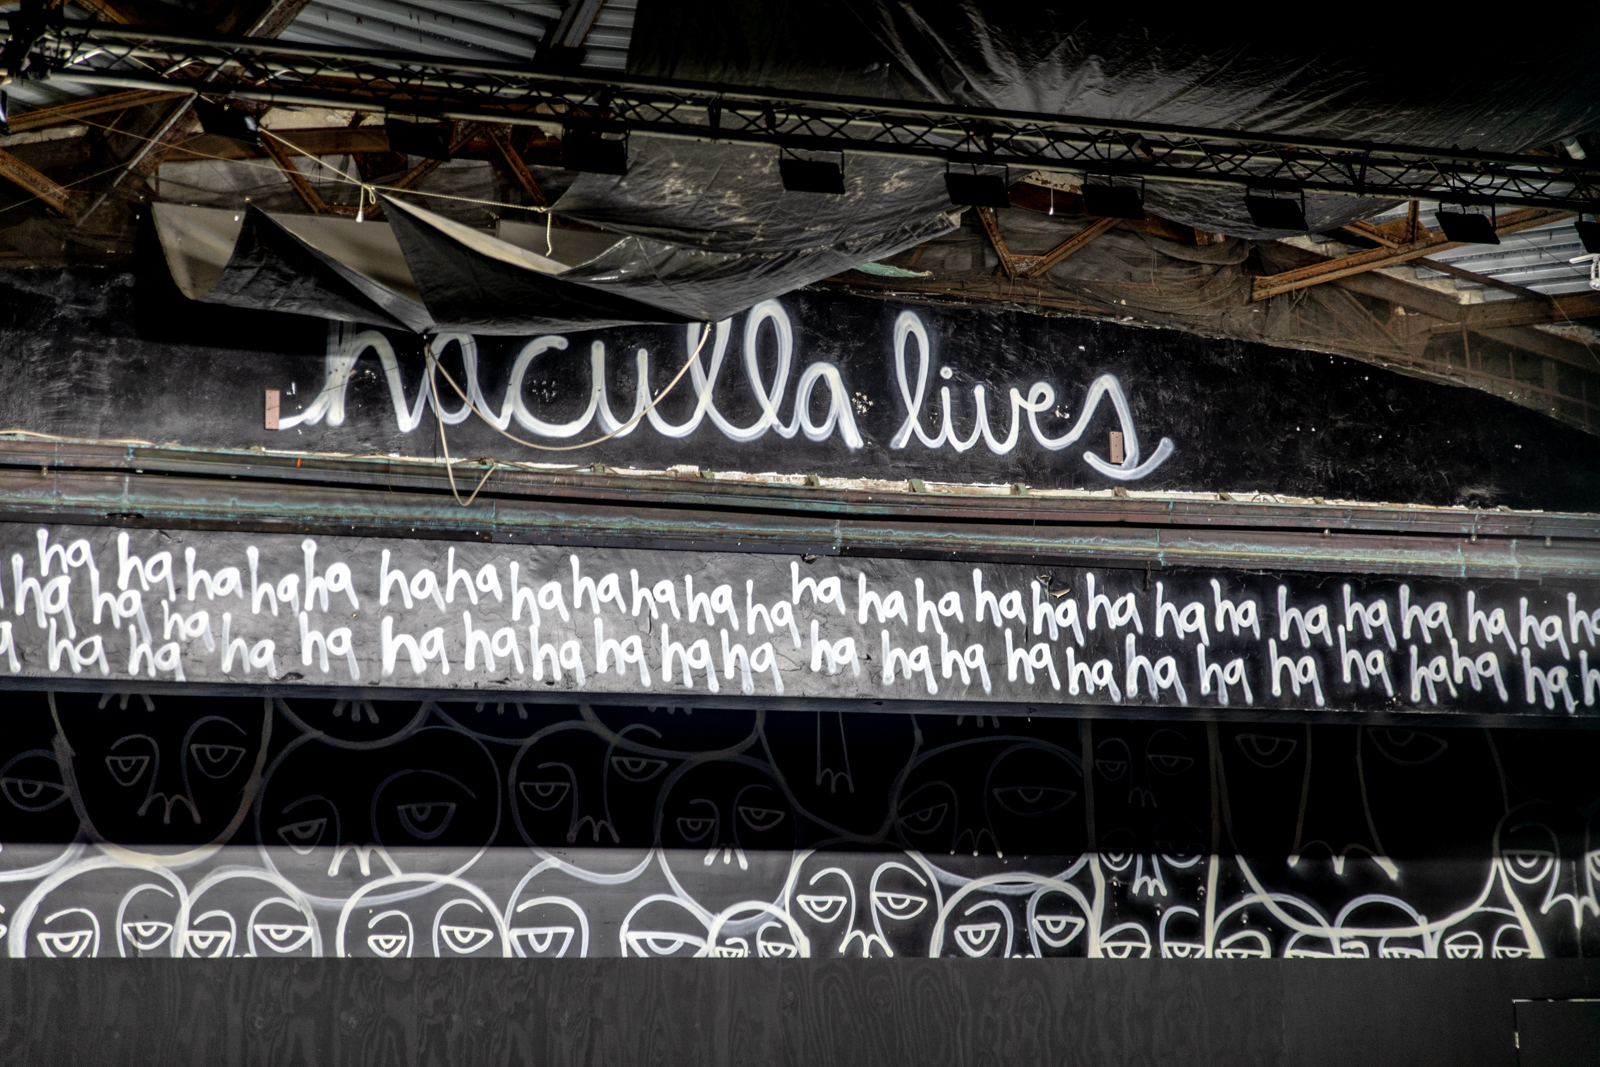 haculla lives
ha ha ha ha ha ha ha ha ha ha ha ha ha ha ha ha ha ha ha ha ha ha ha ha ha ha
ha ha ha
ha ha ha ha ha ha ha ha ha ha ha ha ha ha ha ha ha ha ha ha ha ha ha